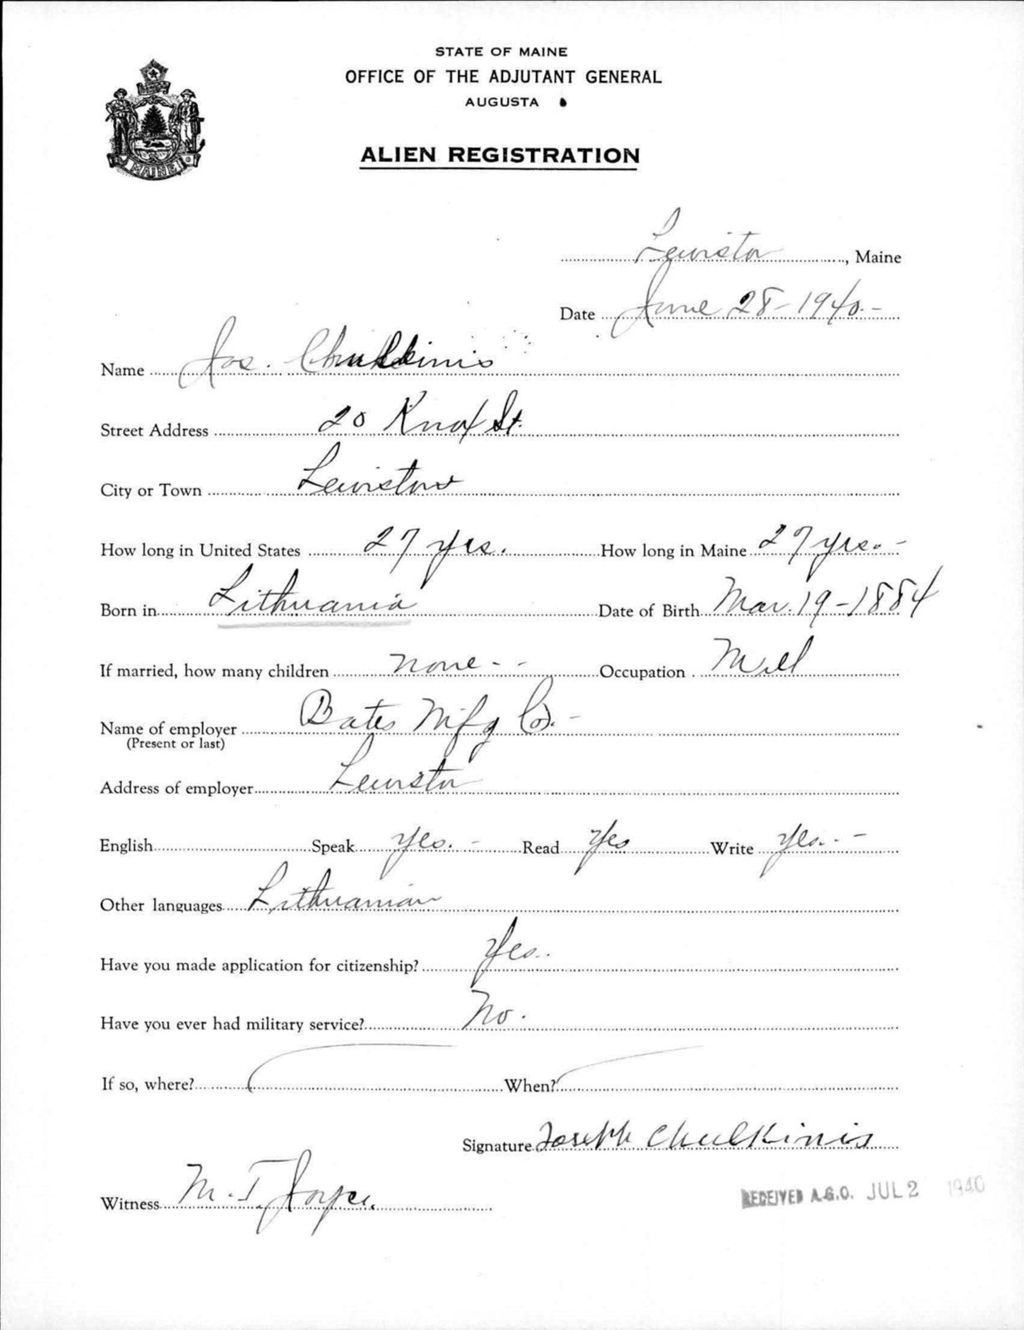 STATE OF MAINE
OFFICE OF THE ADJUTANT GENERAL
AUGUSTA
ALIEN REGISTRATION
MAINE
Lewiston, Maine
Date June 28-1940.-
Name Jos. Chulkinis
Street Address 20 Knox St.
City or Town Lewiston
How long in United States 27 yrs. How long in Maine 27 yrs.-
Born in Lithuania Date of Birth Mar. 19-1884
If married, how many children none - - Occupation Mill
Name of employer Bates Mfg Co. -
(Present or last)
Address of employer Lewiston
English Speak Yes. - Read Yes Write Yes. -
Other languages Lithuanian
Have you made application for citizenship? Yes.
Have you ever had military service? No.
If so, where? When?
Signature Joseph Chulkinis
Witness M. T. Joyce.
RECEIVED A.G.O. JUL 2 1940